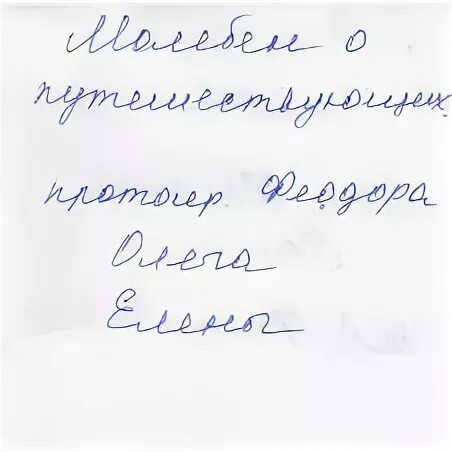 Молебен о
путешествующих
протоиер. Феодора
Олега
Елены